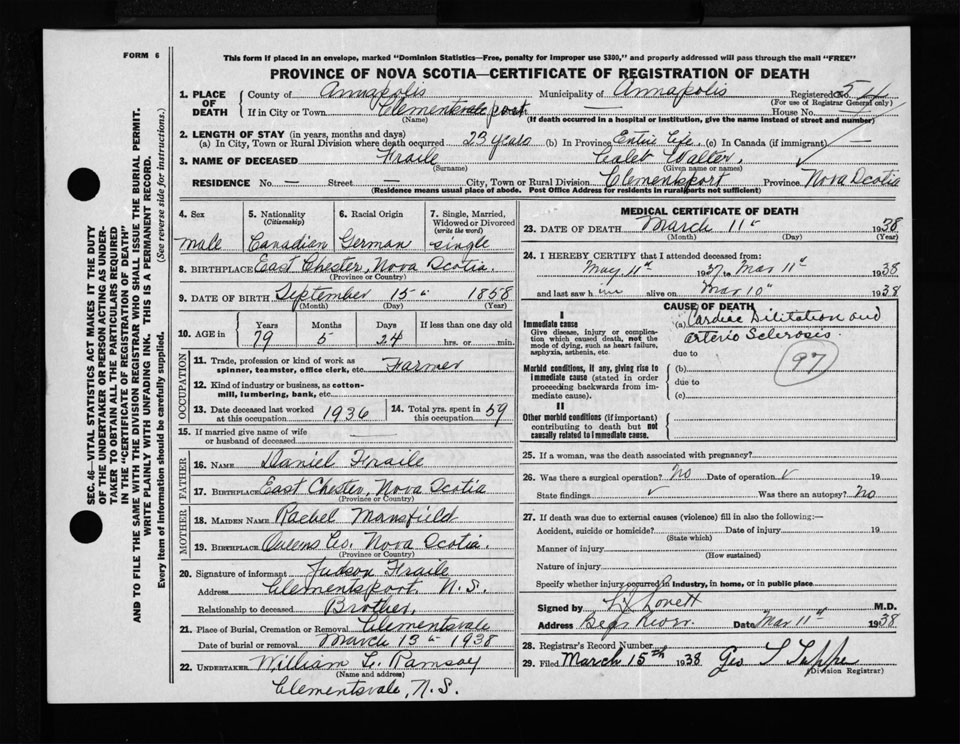 FORM 6
This form if placed in an envelope, marked "Dominion Statistics—Free, penalty for improper use $300," and properly addressed will pass through the mail "FREE"
PROVINCE OF NOVA SCOTIA—CERTIFICATE OF REGISTRATION OF DEATH
1. PLACE OF DEATH County of Annapolis Municipality of Annapolis Registered No. 54
(For use of Registrar General only)
If in City or Town Clementsport — House No. —
(Name) (If death occurred in a hospital or institution, give the name instead of street and number)
2. LENGTH OF STAY (in years, months and days)
(a) In City, Town or Rural Division where death occurred 23 years (b) In Province Entire Life (c) In Canada (if immigrant) —
3. NAME OF DECEASED Fraile Caleb Walter,
(Surname) (Given name or names)
RESIDENCE No. — Street — City, Town or Rural Division Clementsport Province Nova Scotia
(Residence means usual place of abode. Post Office Address for residents in rural parts not sufficient)
4. Sex 5. Nationality (Citizenship) 6. Racial Origin 7. Single, Married, Widowed or Divorced (write the word)
male Canadian German single
8. BIRTHPLACE East Chester, Nova Scotia.
(Province or Country)
9. DATE OF BIRTH September 15th 1858
(Month) (Day) (Year)
10. AGE in Years Months Days If less than one day old
79 5 24 hrs. or min.
OCCUPATION
11. Trade, profession or kind of work as spinner, teamster, office clerk, etc. Farmer
12. Kind of industry or business, as cotton-mill, lumbering, bank, etc.
13. Date deceased last worked at this occupation 1936 14. Total yrs. spent in this occupation 59
15. If married give name of wife or husband of deceased —
FATHER
16. NAME Daniel Fraile
17. BIRTHPLACE East Chester, Nova Scotia
(Province or Country)
MOTHER
18. MAIDEN NAME Rachel Mansfield
19. BIRTHPLACE Queens Co. Nova Scotia.
(Province or Country)
20. Signature of informant Judson Fraile
Address Clementsport, N.S.
Relationship to deceased Brother,
21. Place of Burial, Cremation or Removal Clementsvale
Date of burial or removal March 13th 1938
22. UNDERTAKER William L. Ramsay
(Name and address)
Clementsvale, N.S.
MEDICAL CERTIFICATE OF DEATH
23. DATE OF DEATH March 11th 1938
(Month) (Day) (Year)
24. I HEREBY CERTIFY that I attended deceased from:
May 11th 1937 to Mar 11th 1938
and last saw him alive on Mar 10th 1938
CAUSE OF DEATH
I
Immediate cause
Give disease, injury or complication which caused death, not the mode of dying, such as heart failure, asphyxia, asthenia, etc.
(a) Cardiac Dilitation and
arterio Sclerosis
due to
97
Morbid conditions, if any, giving rise to immediate cause (stated in order proceeding backwards from immediate cause).
(b)
due to
(c)
II
Other morbid conditions (if important) contributing to death but not causally related to immediate cause.
25. If a woman, was the death associated with pregnancy?
26. Was there a surgical operation? No Date of operation 19
State findings Was there an autopsy? No
27. If death was due to external causes (violence) fill in also the following:—
Accident, suicide or homicide? Date of injury 19
(State which)
Manner of injury
(How sustained)
Nature of injury
Specify whether injury occurred in industry, in home, or in public place
Signed by Lovett M.D.
Address Bear River. Date Mar 11th 1938
28. Registrar's Record Number
29. Filed March 15th 1938 Geo
(Division Registrar)
SEC. 46—VITAL STATISTICS ACT MAKES IT THE DUTY
OF THE UNDERTAKER OR PERSON ACTING AS UNDER-
TAKER TO OBTAIN ALL THE PARTICULARS REQUIRED
IN THE "CERTIFICATE OF REGISTRATION OF DEATH"
AND TO FILE THE SAME WITH THE DIVISION REGISTRAR WHO SHALL ISSUE THE BURIAL PERMIT.
WRITE PLAINLY WITH UNFADING INK. THIS IS A PERMANENT RECORD.
Every item of information should be carefully supplied. (See reverse side for instructions.)